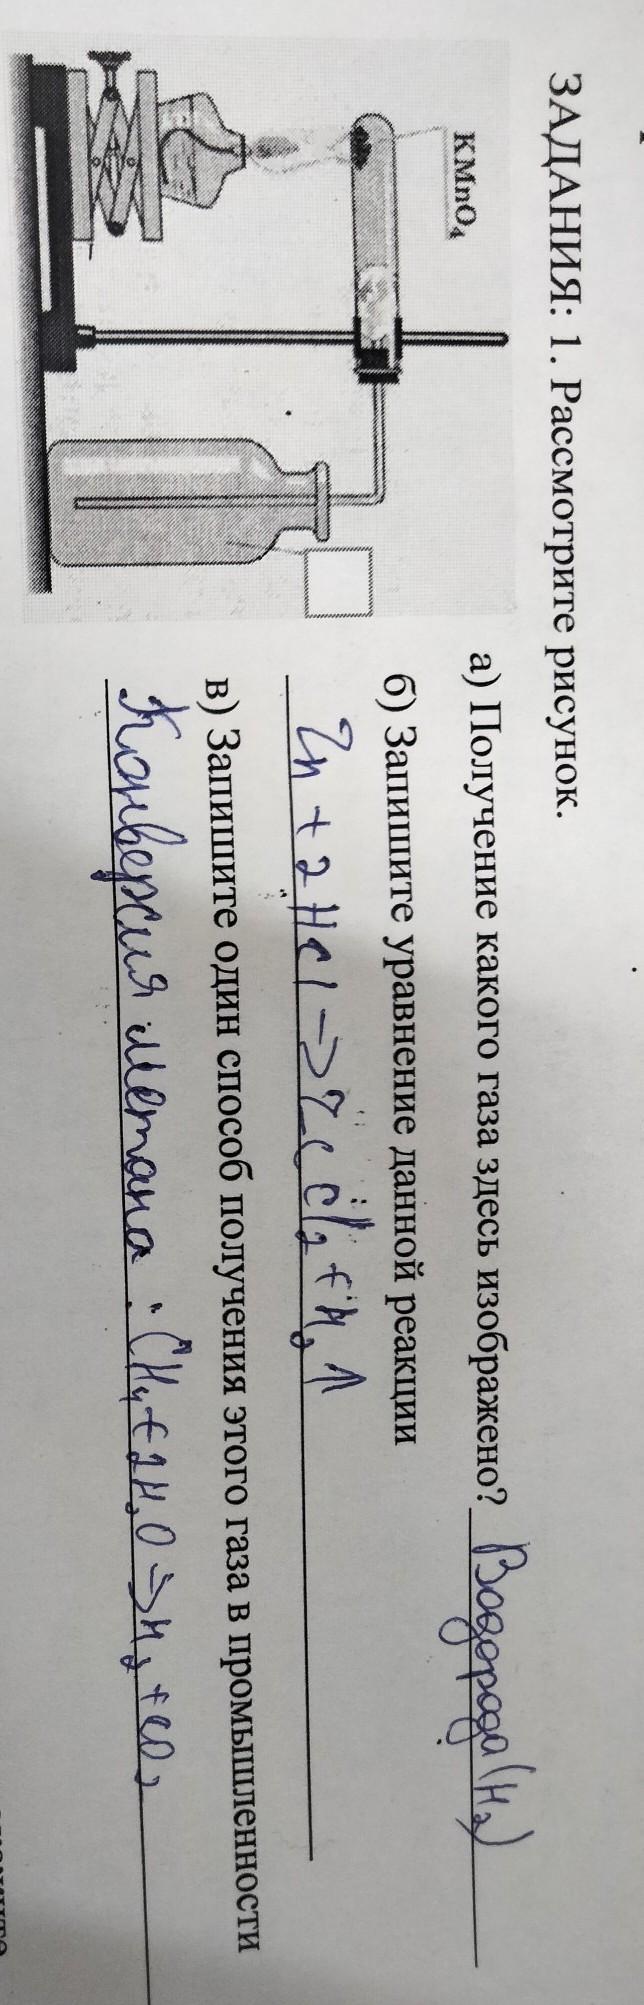 ЗАДАНИЯ: 1. Рассмотрите рисунок.
KMnO4
а) Получение какого газа здесь изображено? Водорода (H2)
б) Запишите уравнение данной реакции
Zn + 2HCl → ZnCl2 + H2 ↑
в) Запишите один способ получения этого газа в промышленности
Конверсия метана: CH4 + 2H2O → H2 + CO2